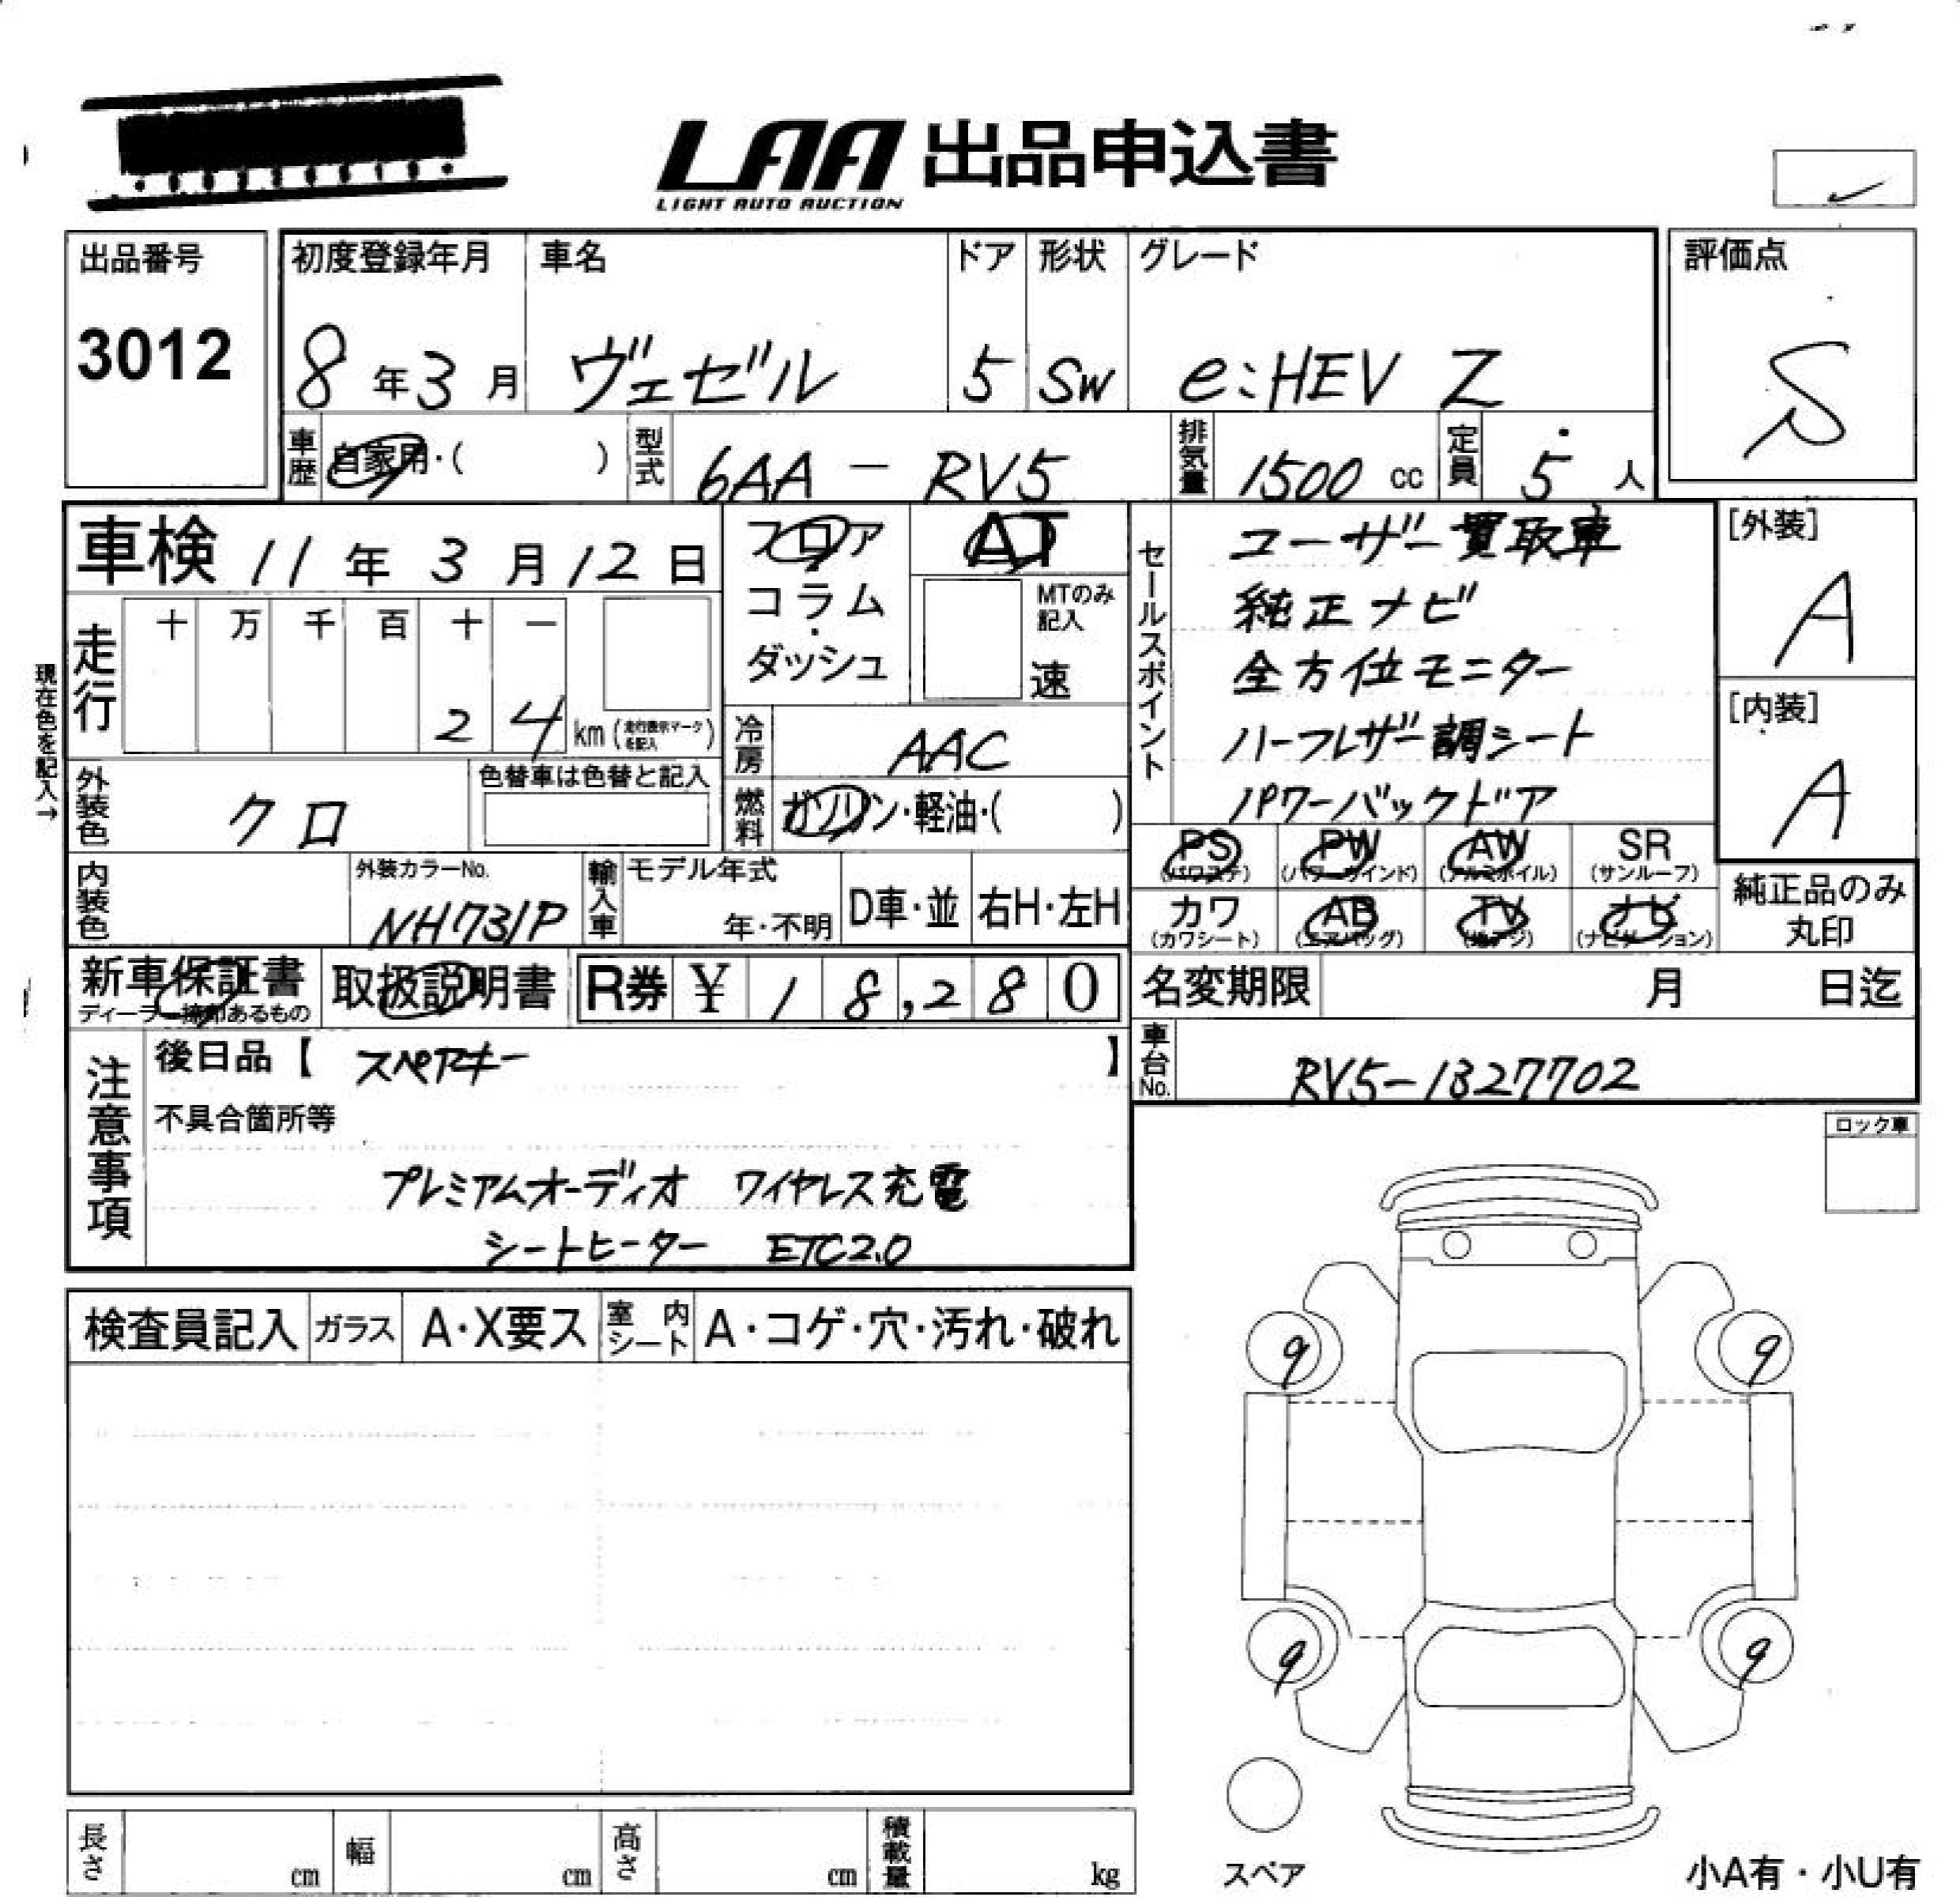 LAA 出品申込書
LIGHT AUTO AUCTION
出品番号
3012
初度登録年月 車名 ドア 形状 グレード
8年3月 ヴェゼル 5 SW e:HEV Z
評価点
S
車歴 自家用・( ) 型式 6AA-RV5 排気量 1500cc 定員 5人
車検 11年3月12日
フロア・コラム・ダッシュ
AT
MTのみ記入
速
走行 十 万 千 百 十 一
24 km (走行表示マークを記入)
現在色を記入→
冷房 AAC
外装色 クロ
色替車は色替と記入
燃料 ガソリン・軽油・( )
セールスポイント
ユーザー買取車
純正ナビ
全方位モニター
ハーフレザー調シート
パワーバックドア
[外装]
A
[内装]
A
内装色
外装カラーNo.
NH731P
輸入車 モデル年式
年・不明
D車・並 右H・左H
PS PW AW SR
(パワステ) (パワーウインド) (アルミホイル) (サンルーフ)
カワ AB TV ナビ
(カワシート) (エアバッグ) (地デジ) (ナビゲーション)
純正品のみ
丸印
新車保証書
ディーラー捺印あるもの
取扱説明書
R券 ¥ 18,280
名変期限 月 日迄
車台No. RV5-1327702
注意事項
後日品【 スペアキー 】
不具合箇所等
プレミアムオーディオ ワイヤレス充電
シートヒーター ETC2.0
ロック車
検査員記入 ガラス A・X要ス 室内シート A・コゲ・穴・汚れ・破れ
9 9
9 9
スペア
長さ cm 幅 cm 高さ cm 積載量 kg
小A有・小U有